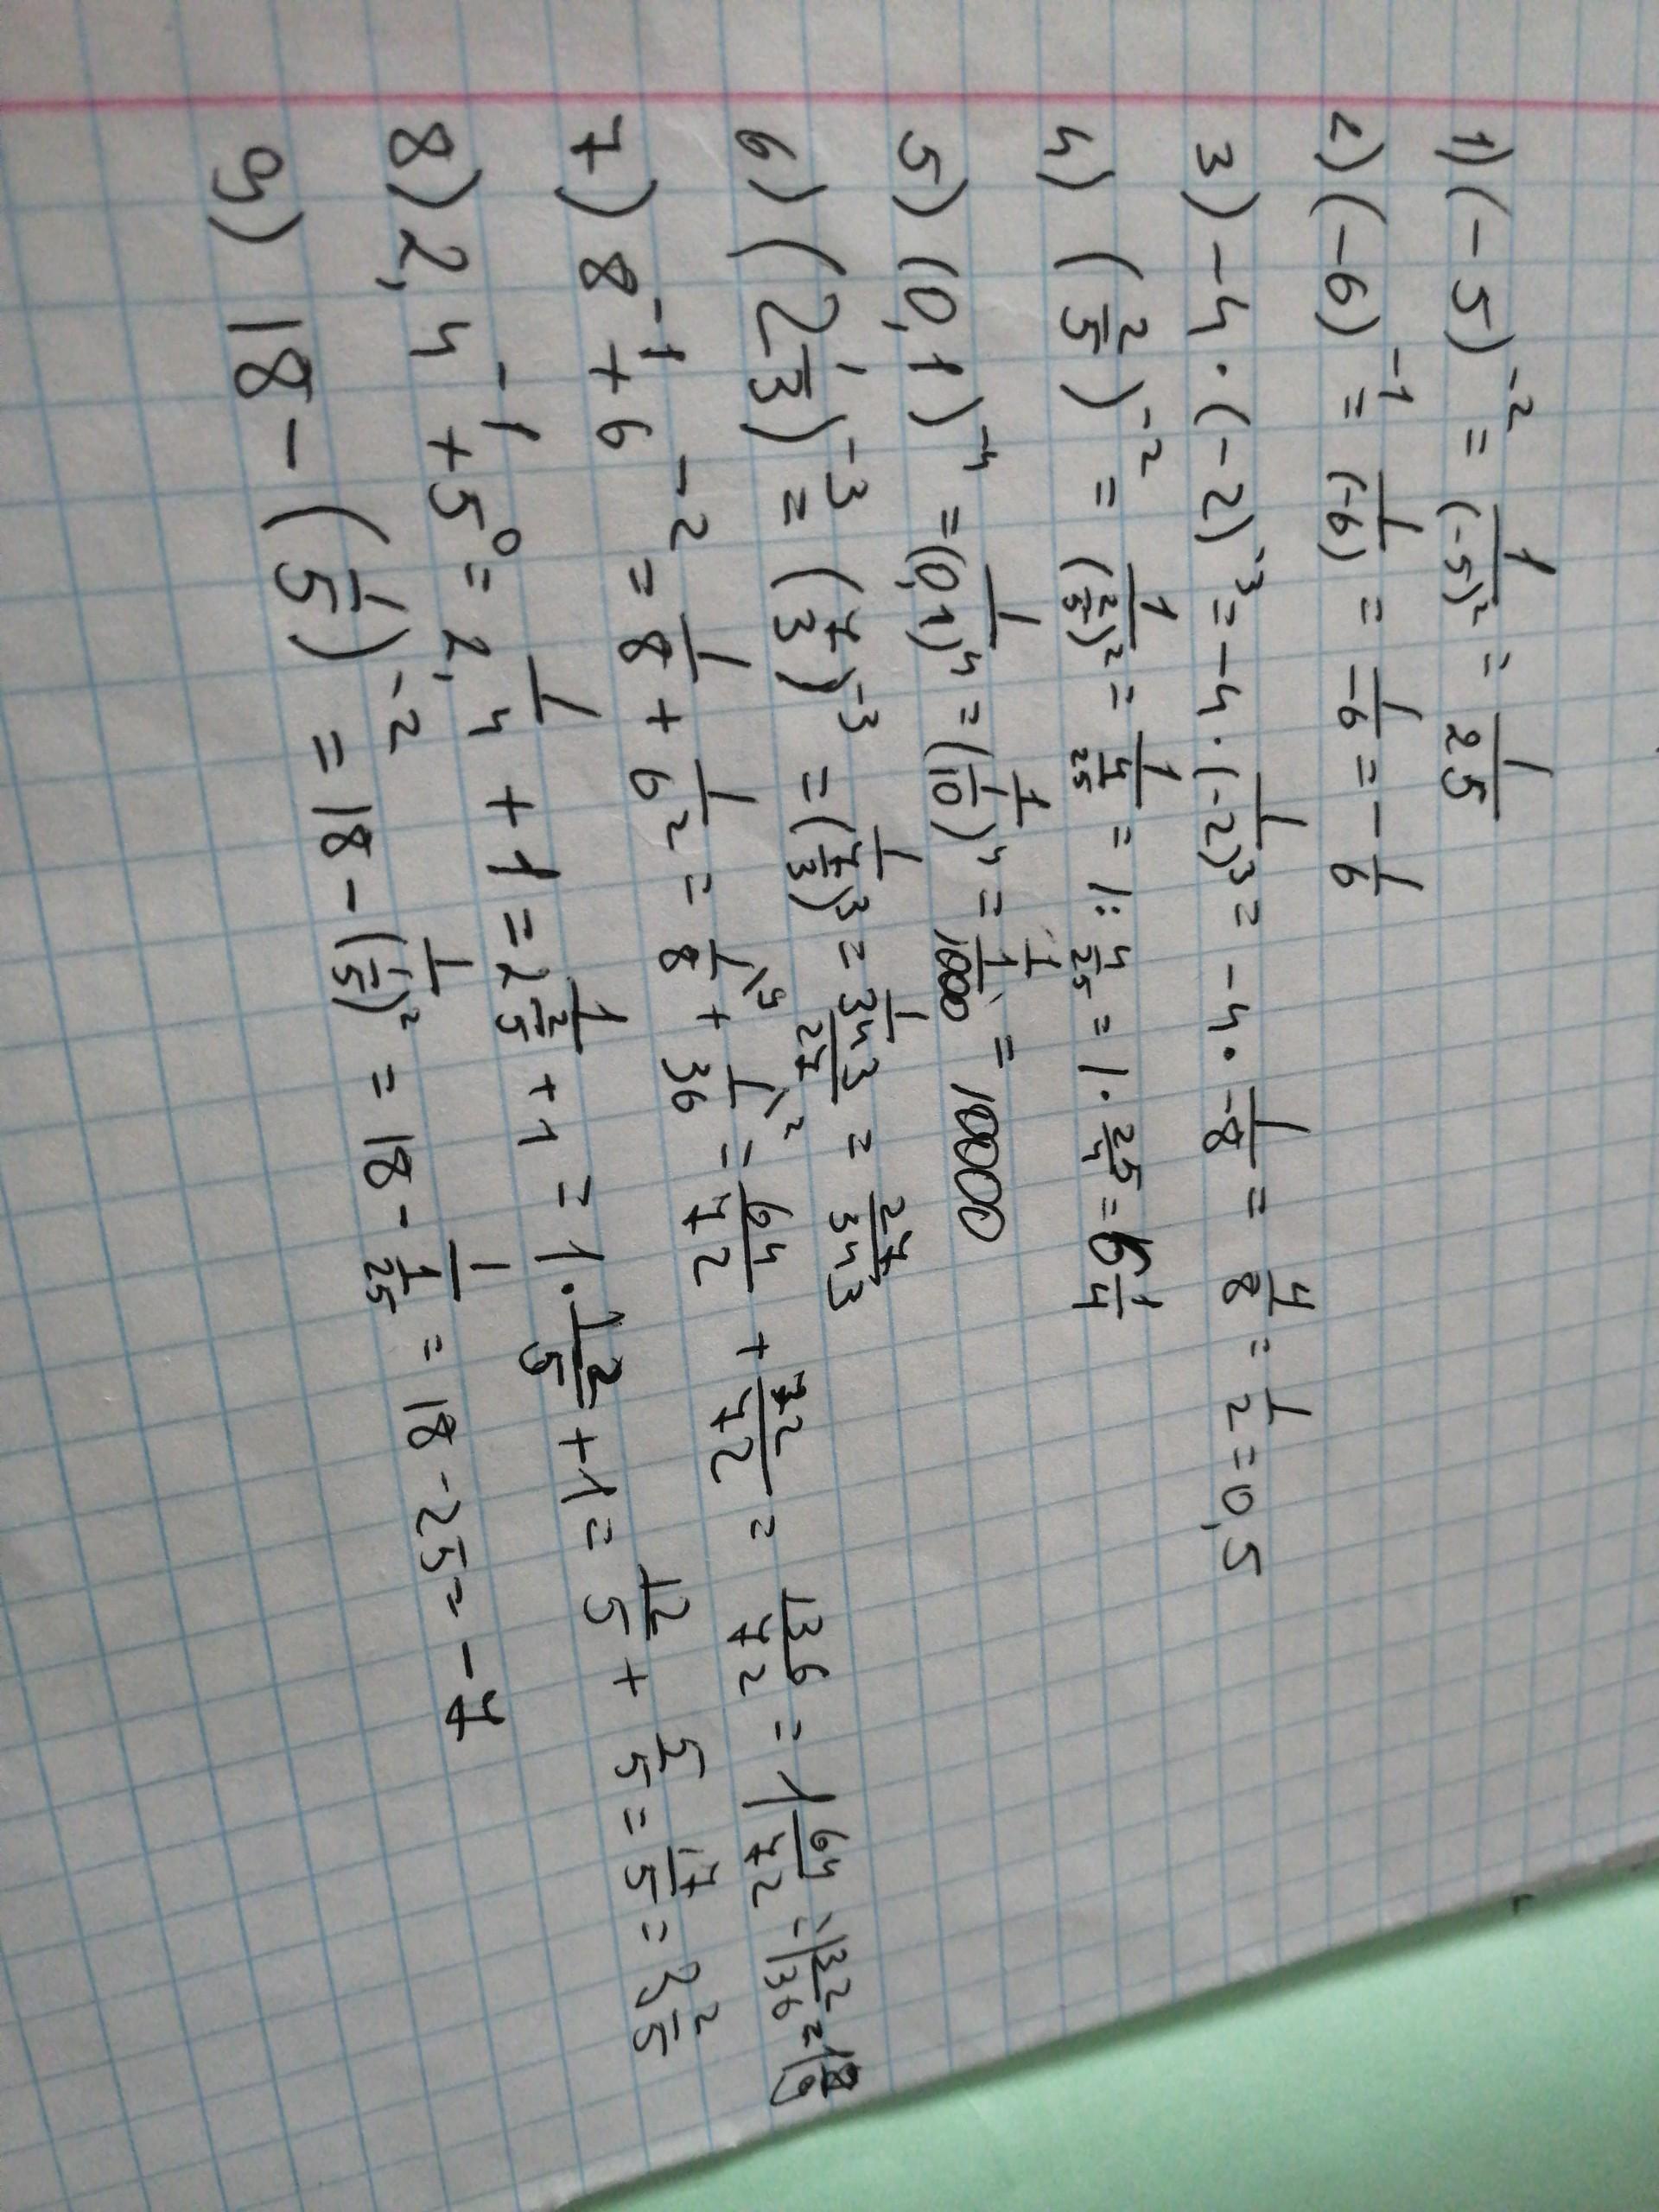 1) (-5)^-2 = 1/(-5)^2 = 1/25
2) (-6)^-1 = 1/(-6) = 1/-6 = -1/6
3) -4 · (-2)^-3 = -4 · 1/(-2)^3 = -4 · 1/-8 = 4/8 = 1/2 = 0,5
4) (2/5)^-2 = 1/(2/5)^2 = 1/(4/25) = 1 : 4/25 = 1 · 25/4 = 6 1/4
5) (0,1)^-4 = 1/(0,1)^4 = 1/(1/10)^4 = 1/(1/10000) = 10000
6) (2 1/3)^-3 = (7/3)^-3 = 1/(7/3)^3 = 1/(343/27) = 27/343
7) 8^-1 + 6^-2 = 1/8 + 1/6^2 = 1/8 \9 + 1/36 \2 = 64/72 + 72/72 = 136/72 = 1 64/72 = 1 32/36 = 1 8/9
8) 2,4^-1 + 5^0 = 1/2,4 + 1 = 1/(2 2/5) + 1 = 1 · 12/5 + 1 = 12/5 + 5/5 = 17/5 = 3 2/5
9) 18 - (1/5)^-2 = 18 - 1/(1/5)^2 = 18 - 1/(1/25) = 18 - 25 = -7